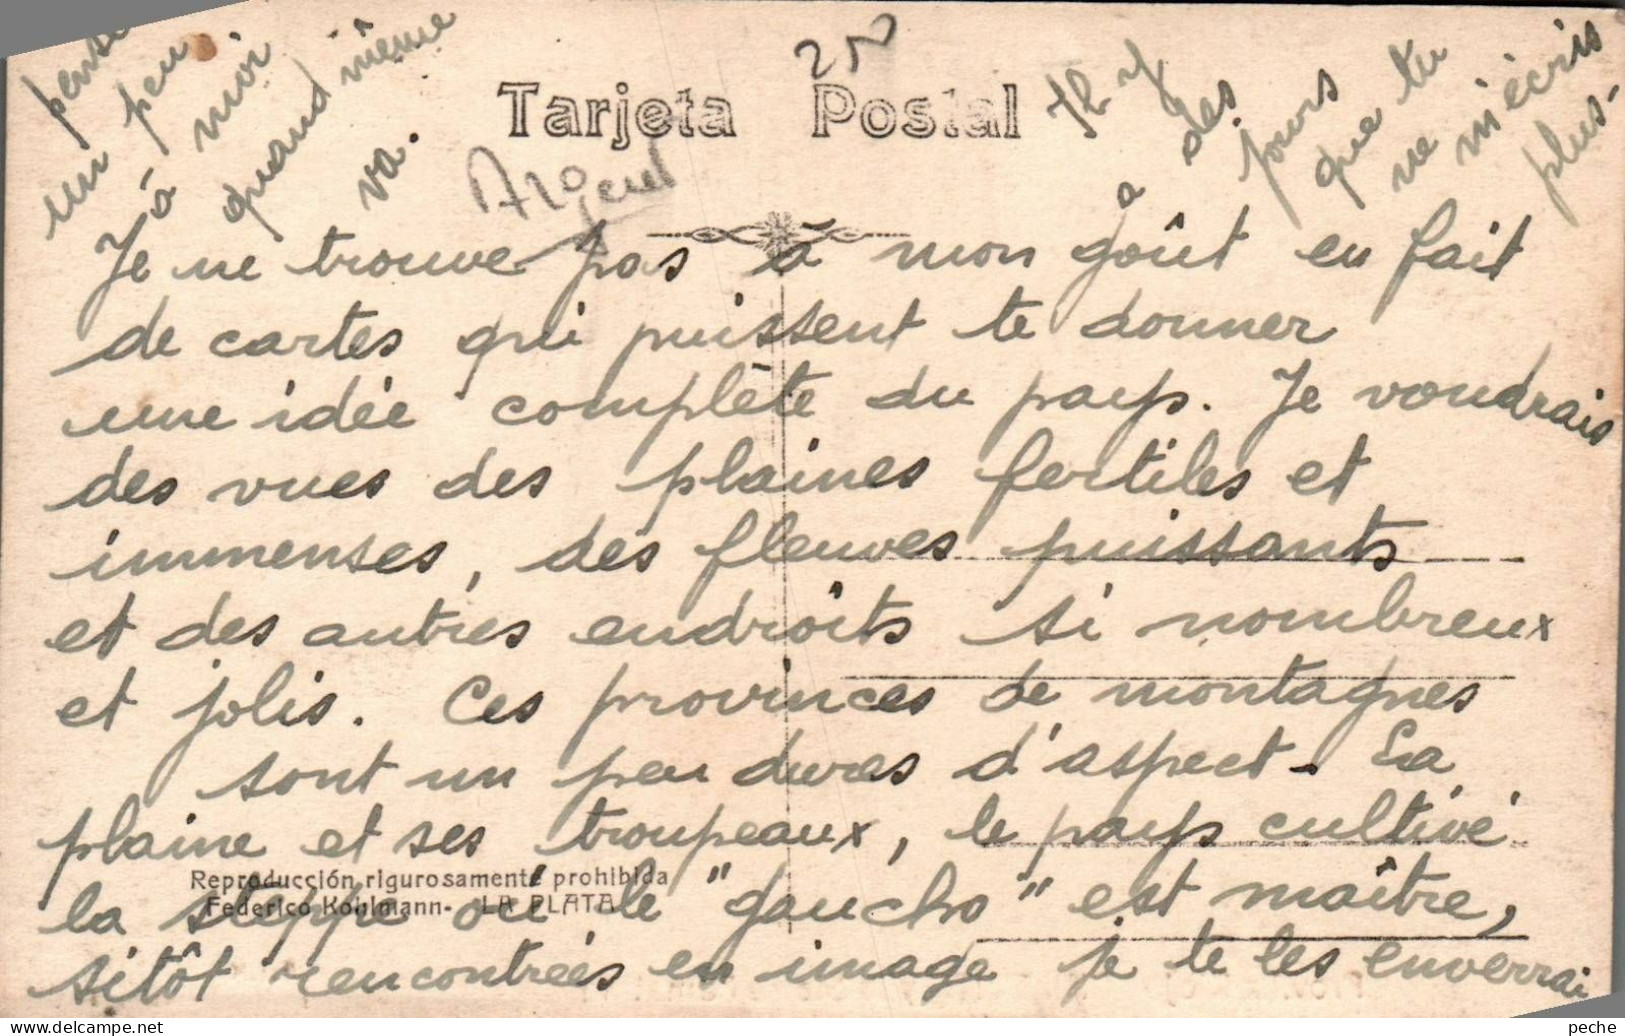 Tarjeta Postal
Je ne trouve pas à mon goût en fait
de cartes qui puissent te donner
une idée complète du pays. Je voudrais
des vues des plaines fertiles et
immenses, des fleuves puissants
et des autres endroits si nombreux
et jolis. Ces provinces de montagnes
sont un peu dures d'aspect. La
plaine et ses troupeaux, le pays cultivé
la steppe où le "gaucho" est maître,
sitôt rencontrées en image je te les enverrai
Il y
a des
jours
que tu
ne m'écris
plus-
pense
un peu
à moi
quand même
va.
Reproducción rigurosamente prohibida
Federico Kohlmann- LA PLATA
peche